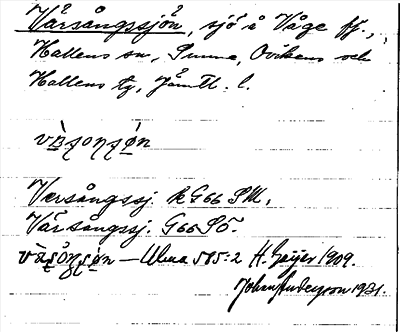 Vårsångssjön, sjö å Våge ff.,
Hallens sn, Sunne, Ovikens och
Hallens tg, Jämtl. l.
Versångssj. k G66 SM.
Vårsångssj. G66 SÖ.
— Ulma 585:2 H. Geijer 1909.
Johan Anderson 1931.